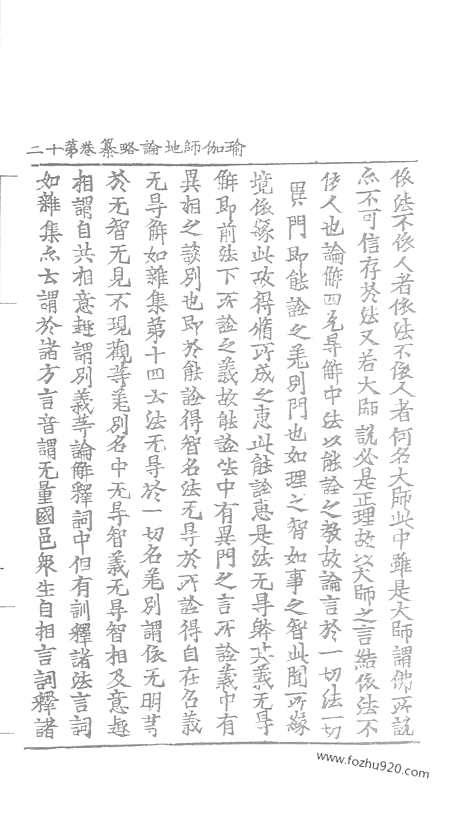 瑜伽師地論略纂卷第十二
依法不依人者依法不依人者何名大師此中雖是大師謂佛所説
亦不可信存於法又若大師說必是正理故以大師之言結依法不
依人也論解四无㝵解中法以能詮之教故論言於一切法一切
異門即能詮之差別門也如理之智如事之智此聞所緣
境依緣此故得脩所成之恵此能詮恵是法无㝵解其義无㝵
解即前法下所詮之義故能詮法中有異門之言所詮義中有
異相之談別也即於能詮得智名法无㝵於所詮得自在名義
无㝵解如雜集第十四云法无㝵於一切名差別謂依无明等
於无智无見不現觀等差別名中无㝵智義无㝵智相及意趣
相謂自共相意趣謂別義等論解釋詞中但有訓釋諸法言詞
如雜集亦云謂於諸方言音謂无量國邑衆生自相言詞釋諸
www.fozhu920.com